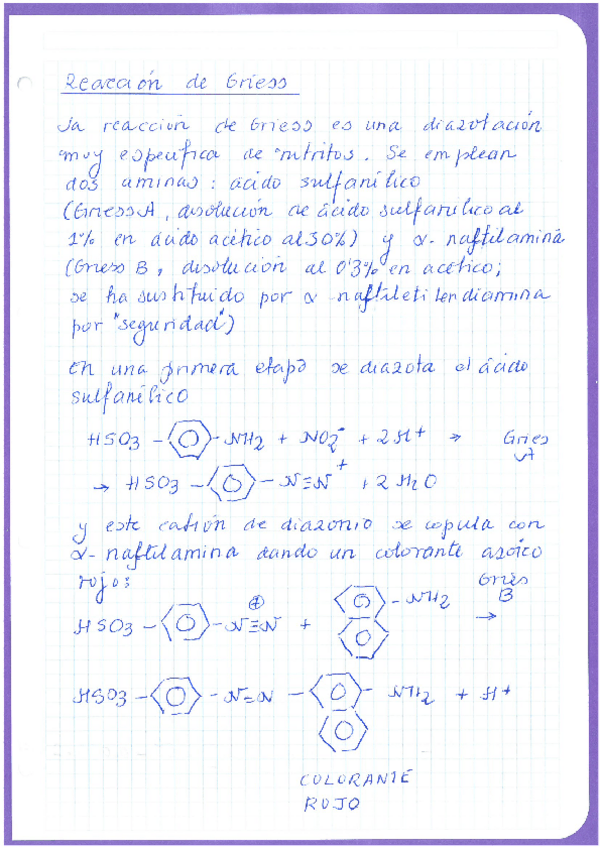 Reacción de Griess
La reacción de Griess es una diazotación
muy específica de nitritos. Se emplean
dos aminas: ácido sulfanílico
(Griess A, disolución de ácido sulfanílico al
1% en ácido acético al 30%) y α-naftilamina
(Griess B, disolución al 0'3% en acético;
se ha sustituido por α-naftiletilendiamina
por "seguridad")
En una primera etapa se diazota el ácido
sulfanílico
HSO3 - NH2 + NO2⁻ + 2H⁺ → Gries
A
→ HSO3 - N≡N⁺ + 2H2O
y este catión de diazonio se copula con
α-naftilamina dando un colorante azoico
rojo:
HSO3 - N≡N⊕ + - NH2 → Griès
B
HSO3 - N=N - - NH2 + H⁺
COLORANTE
ROJO